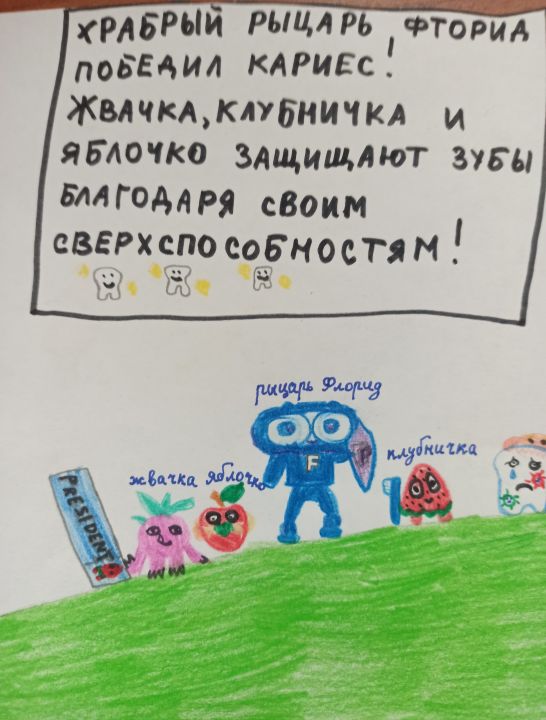 ХРАБРЫЙ РЫЦАРЬ ФТОРИД
ПОБЕДИЛ КАРИЕС!
ЖВАЧКА, КЛУБНИЧКА И
ЯБЛОЧКО ЗАЩИЩАЮТ ЗУБЫ
БЛАГОДАРЯ СВОИМ
СВЕРХСПОСОБНОСТЯМ!
рыцарь Флорид
клубничка
жвачка яблочко
F
PRESIDENT